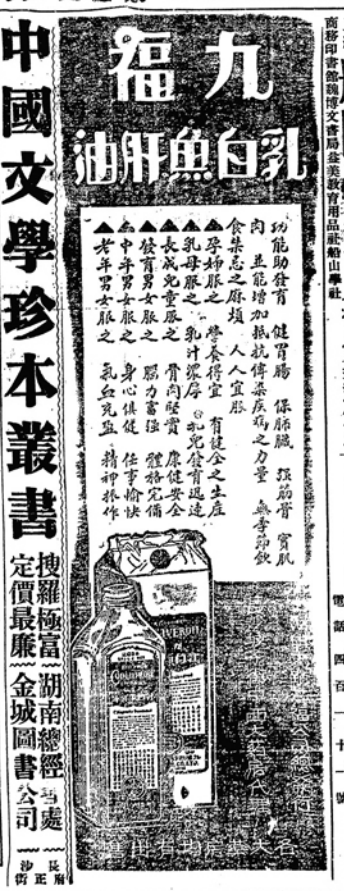 商務印書館魏博文書局益美教育用品社船山學社
電話四百一十一號
九福
乳白魚肝油
功能助發育 健胃腸 保肺臟 強筋骨 實肌
肉 並能增加抵抗傳染疾病之力量 無季節飲
食禁忌之麻煩 人人宜服
▲孕婦服之 營養得宜 有健全之生產
▲乳母服之 乳汁濃厚 乳兒發育迅速
▲長成兒童服之 骨肉堅實 康健安全
▲發育男女服之 腦力富強 體格完備
▲中年男女服之 身心俱健 任事愉快
▲老年男女服之 氣血充盈 精神振作
各大藥房均有出售
中國文學珍本叢書
搜羅極富
定價最廉
湖南總經售處
金城圖書公司
長沙
府正街